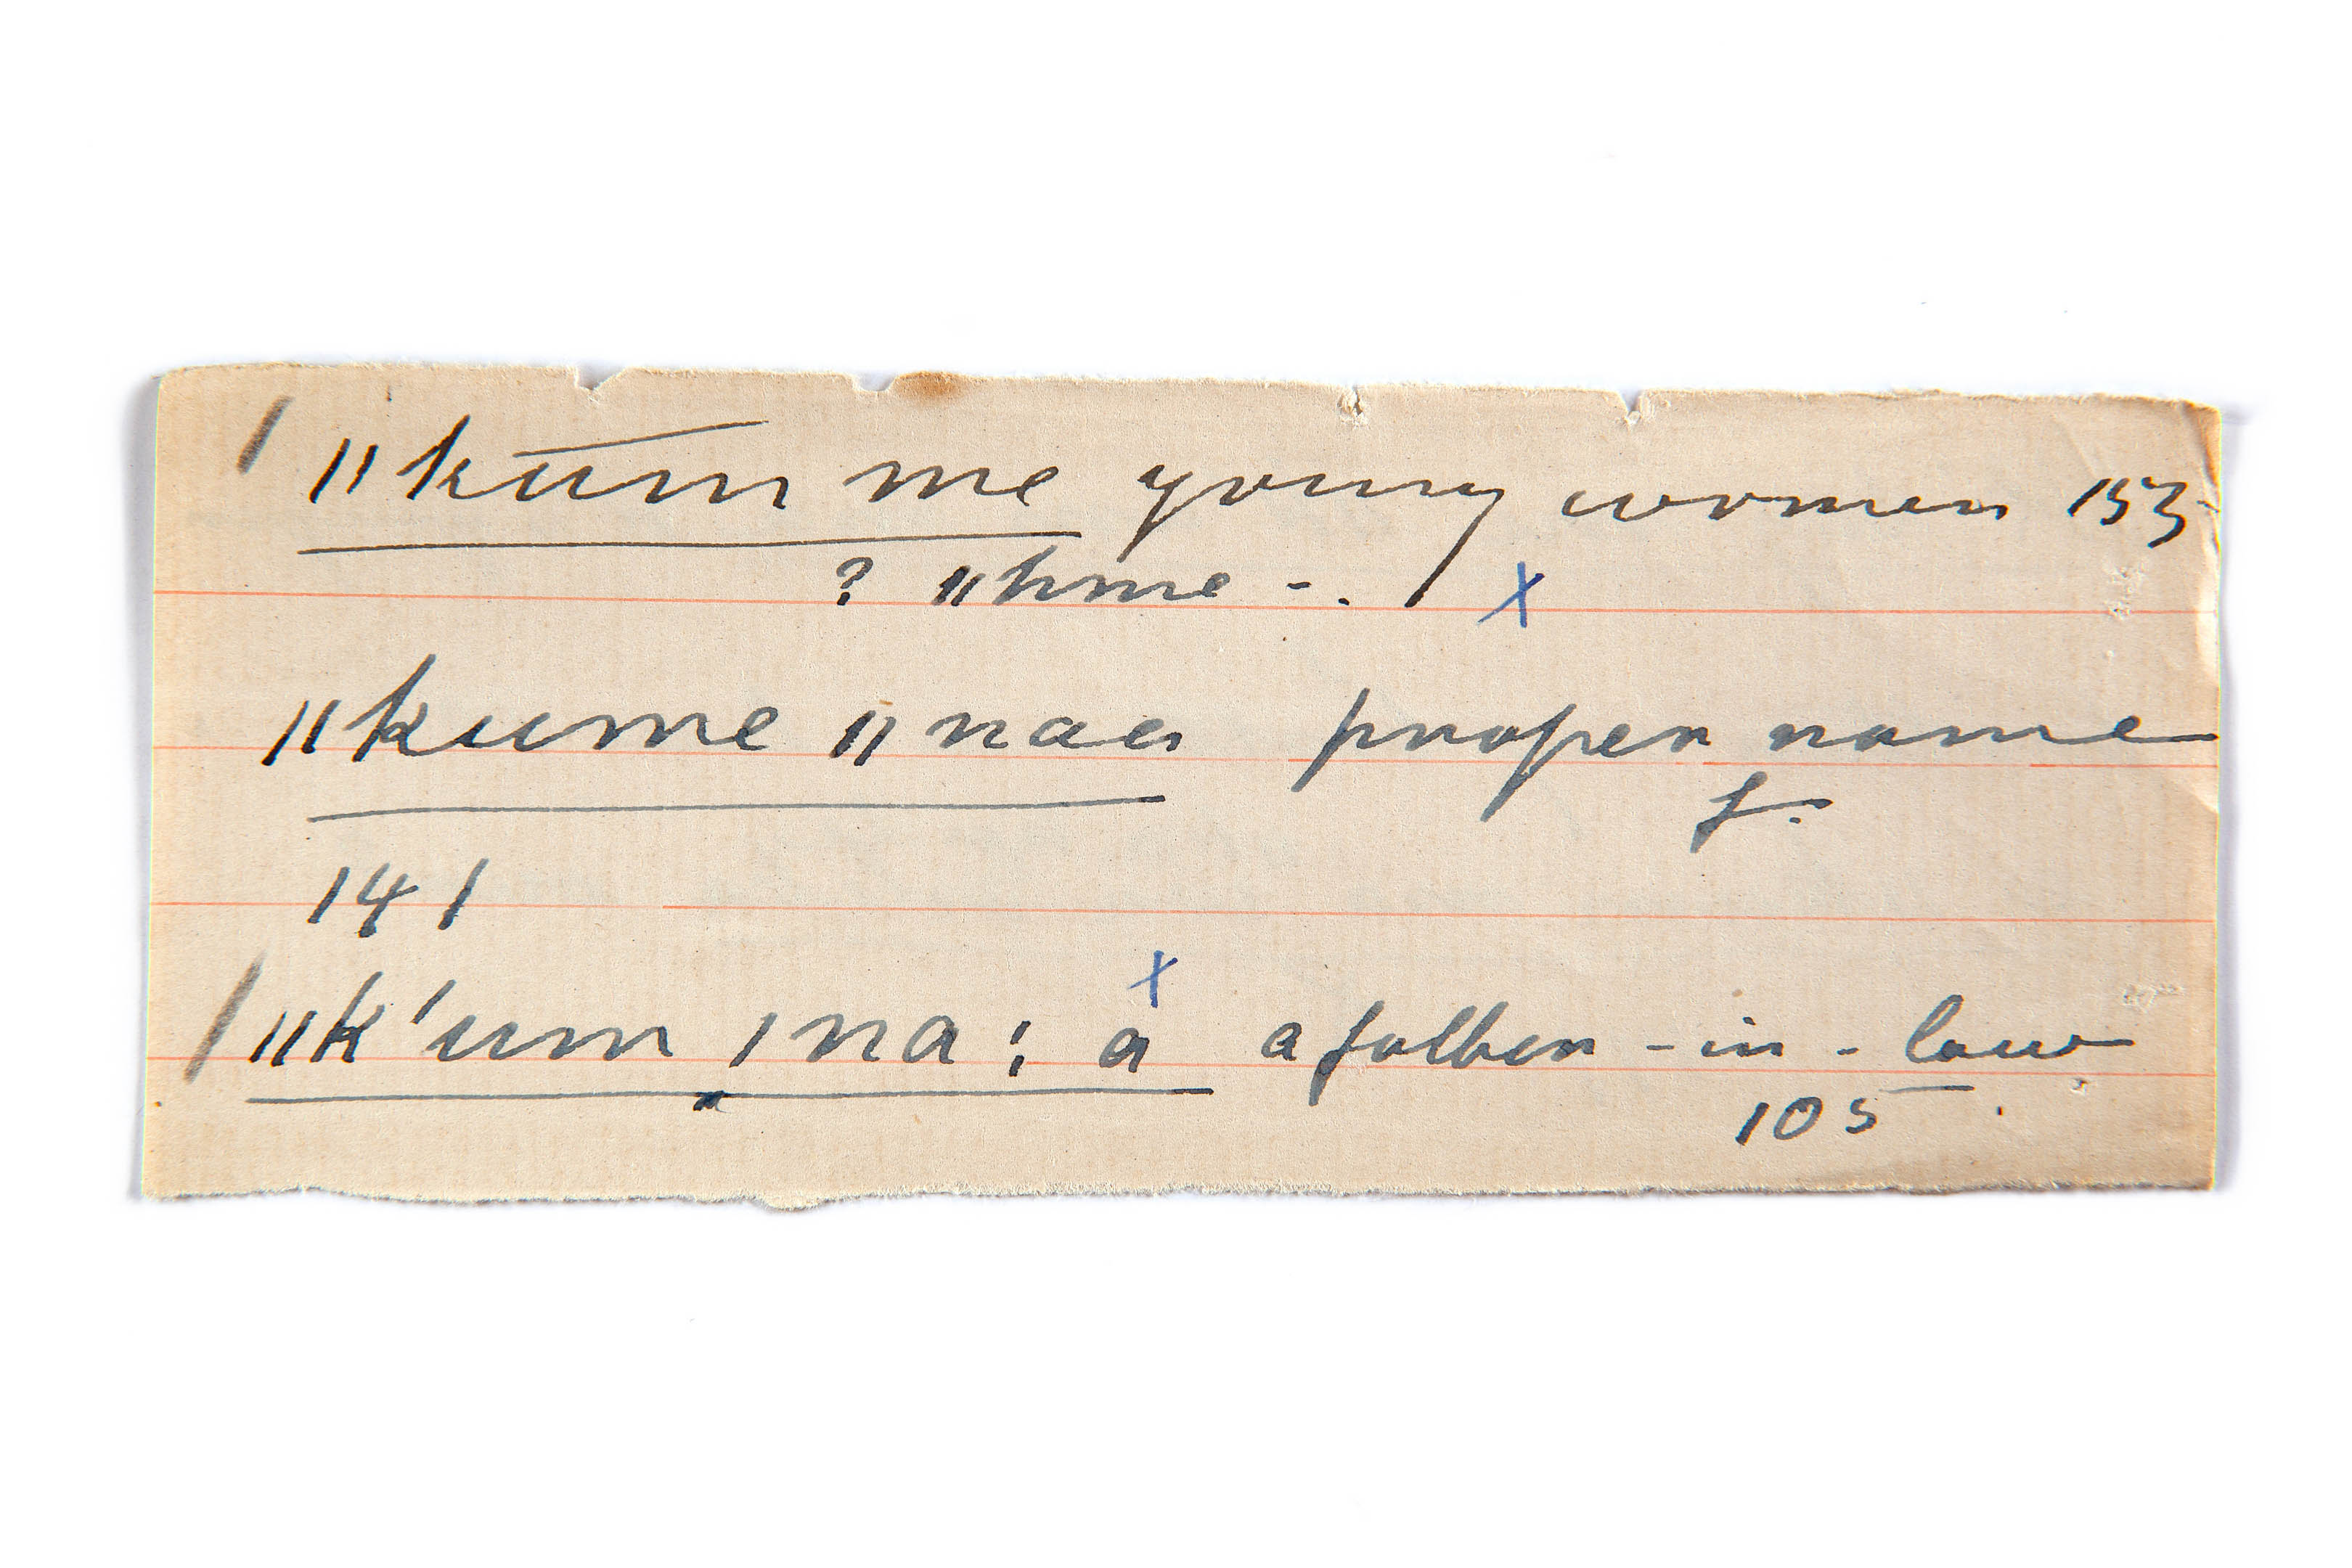 ǁkūm me young women 153
? ǁhme -.
ǁkume ǁnaa proper name
f.
141
ǁk'um ǀna: a a father-in-law
105